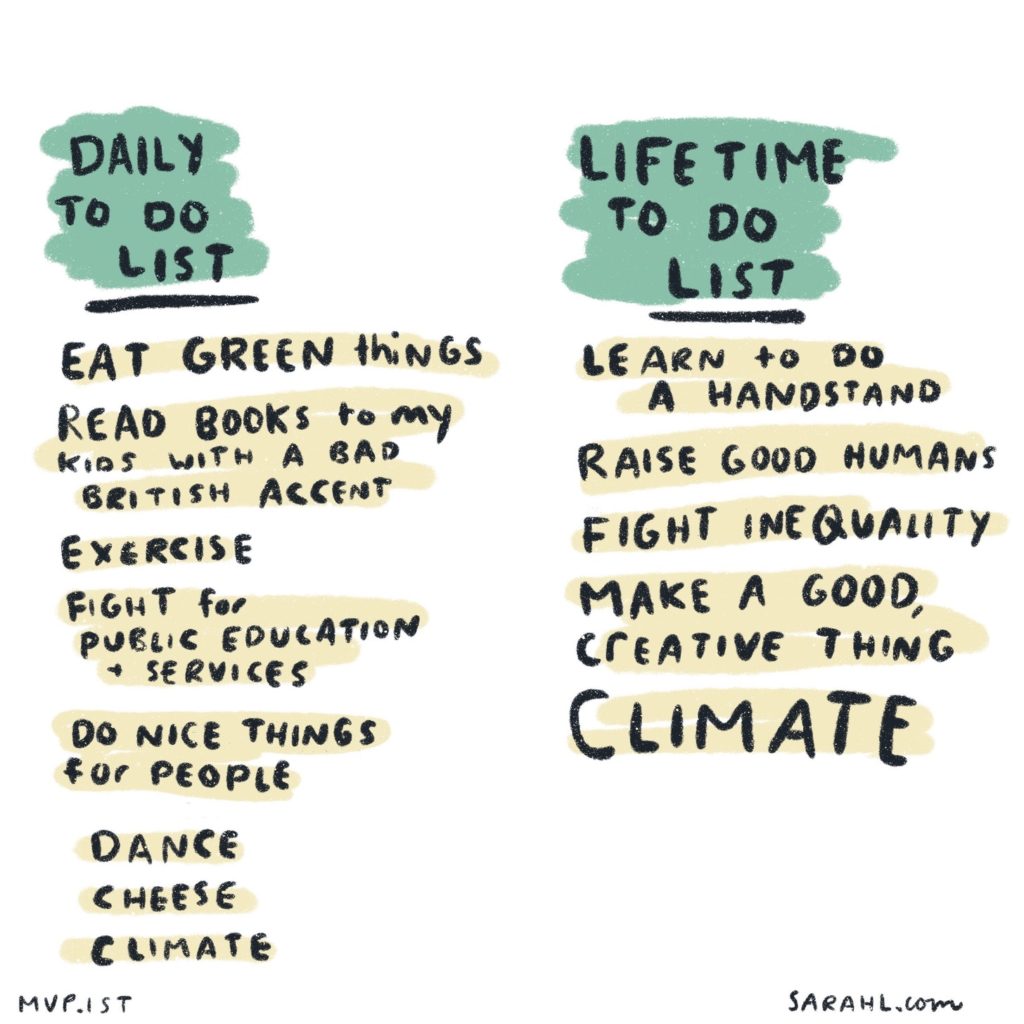 DAILY
TO DO
LIST
EAT GREEN thiNGS
READ BOOKS to my
KIDS WITH A BAD
BRITISH ACCENT
EXERCISE
FIGHT for
PUBLIC EDUCATION
+ SERVICES
DO NICE THINGS
for PEOPLE
DANCE
CHEESE
CLIMATE
LIFETIME
TO DO
LIST
LEARN to DO
A HANDSTAND
RAISE GOOD HUMANS
FIGHT INEQUALITY
MAKE A GOOD,
CREATIVE THING
CLIMATE
MVP.IST
SARAHL.com